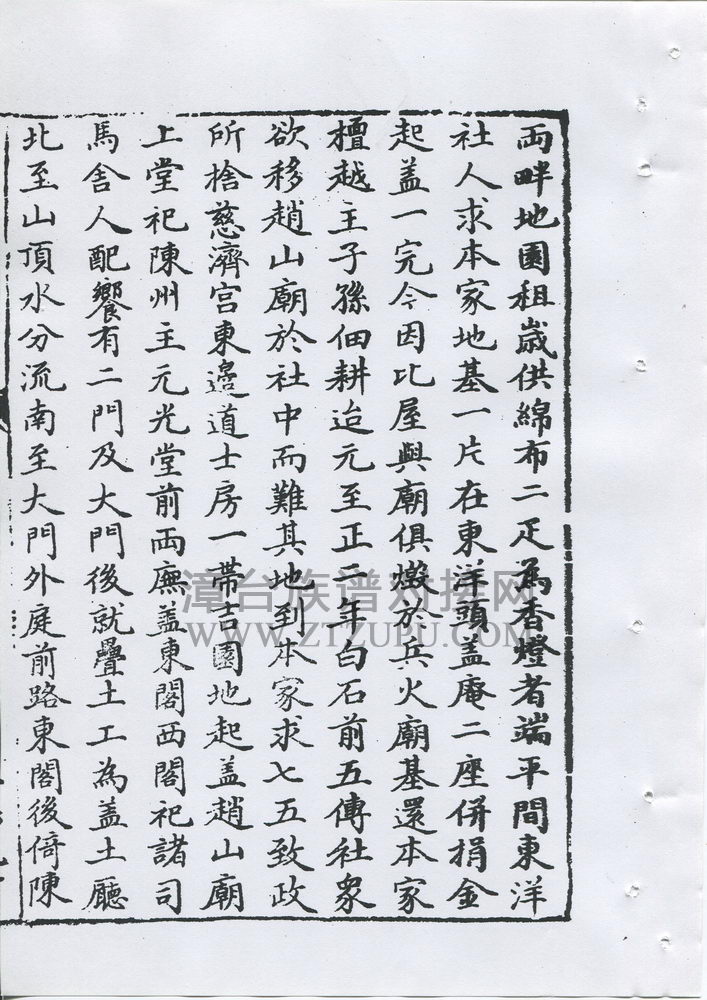 兩畔地園租歲供綿布二疋為香燈者端平間東洋
社人求本家地基一片在東洋頭蓋庵二座併捐金
起盖一完今因比屋與廟俱燬於兵火廟基還本家
檀越主子孫佃耕迨元至正二年白石前五傳社衆
欲移趙山廟於社中而難其地到本家求七五致政
所捨慈濟宮東邉道士房一帶吉園地起盖趙山廟
上堂祀陳州主元光堂前兩廡盖東閣西閣祀諸司
馬舍人配饗有二門及大門後就疊土工為盖土廳
北至山頂水分流南至大門外庭前路東閣後倚陳
漳台族谱对接网
WWW.ZTZUPU.COM